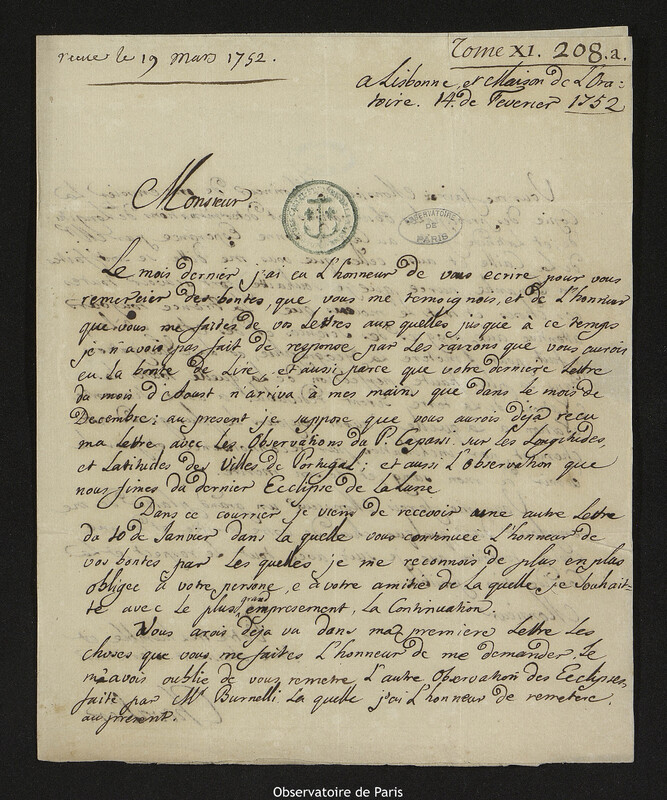 recue le 19 Mars 1752.
Tome XI. 208.a.
a Lisbonne, et Maison de L'Ora-
toire. 14. de Feverier 1752
Monsieur
OBSERVATOIRE
DE
PARIS
Le mois dernier j'ai eu L'honneur de vous ecrire pour vous
remercier des bontes, que vous me temoignois, et de L'honneur
que vous me faites de vos Lettres aux quelles jusque à ce temps
je n'avois pas fait de response par Les raizons que vous aurois
eu la bonte de Lire, et aussi parce que votre derniere Lettre
du mois d'Aoust n'ariva à mes mains que dans le mois de
Decembre; au present je suppose que vous aurois dèjà recu
ma Lettre avec Les Observations du P. Capassi sur Les Longitudes,
et Latitudes des Villes de Portugal; et aussi L'Observation que
nous fimes du dernier Ecclipse de La Lune
Dans ce courrier je viens de recevoir une autre Lettre
du 10 de Janvier dans la quelle vous continuèe L'honneur de
vos bontes par Les quelles je me reconnois de plus en plus
obligèe à votre persone, e à votre amitiè de La quelle je souhait-
te avec Le plus grand empresement, La Continuation.
Vous avois dèja vu dans ma premiere Lettre Les
choses que vous me faites L'honneur de me demander. Je
m'avois oublie de vous remetre L'autre Observation des Ecclipses
faite par Mr. Burnelli La quelle j'ai L'honneur de remetere
au present.
Observatoire de Paris